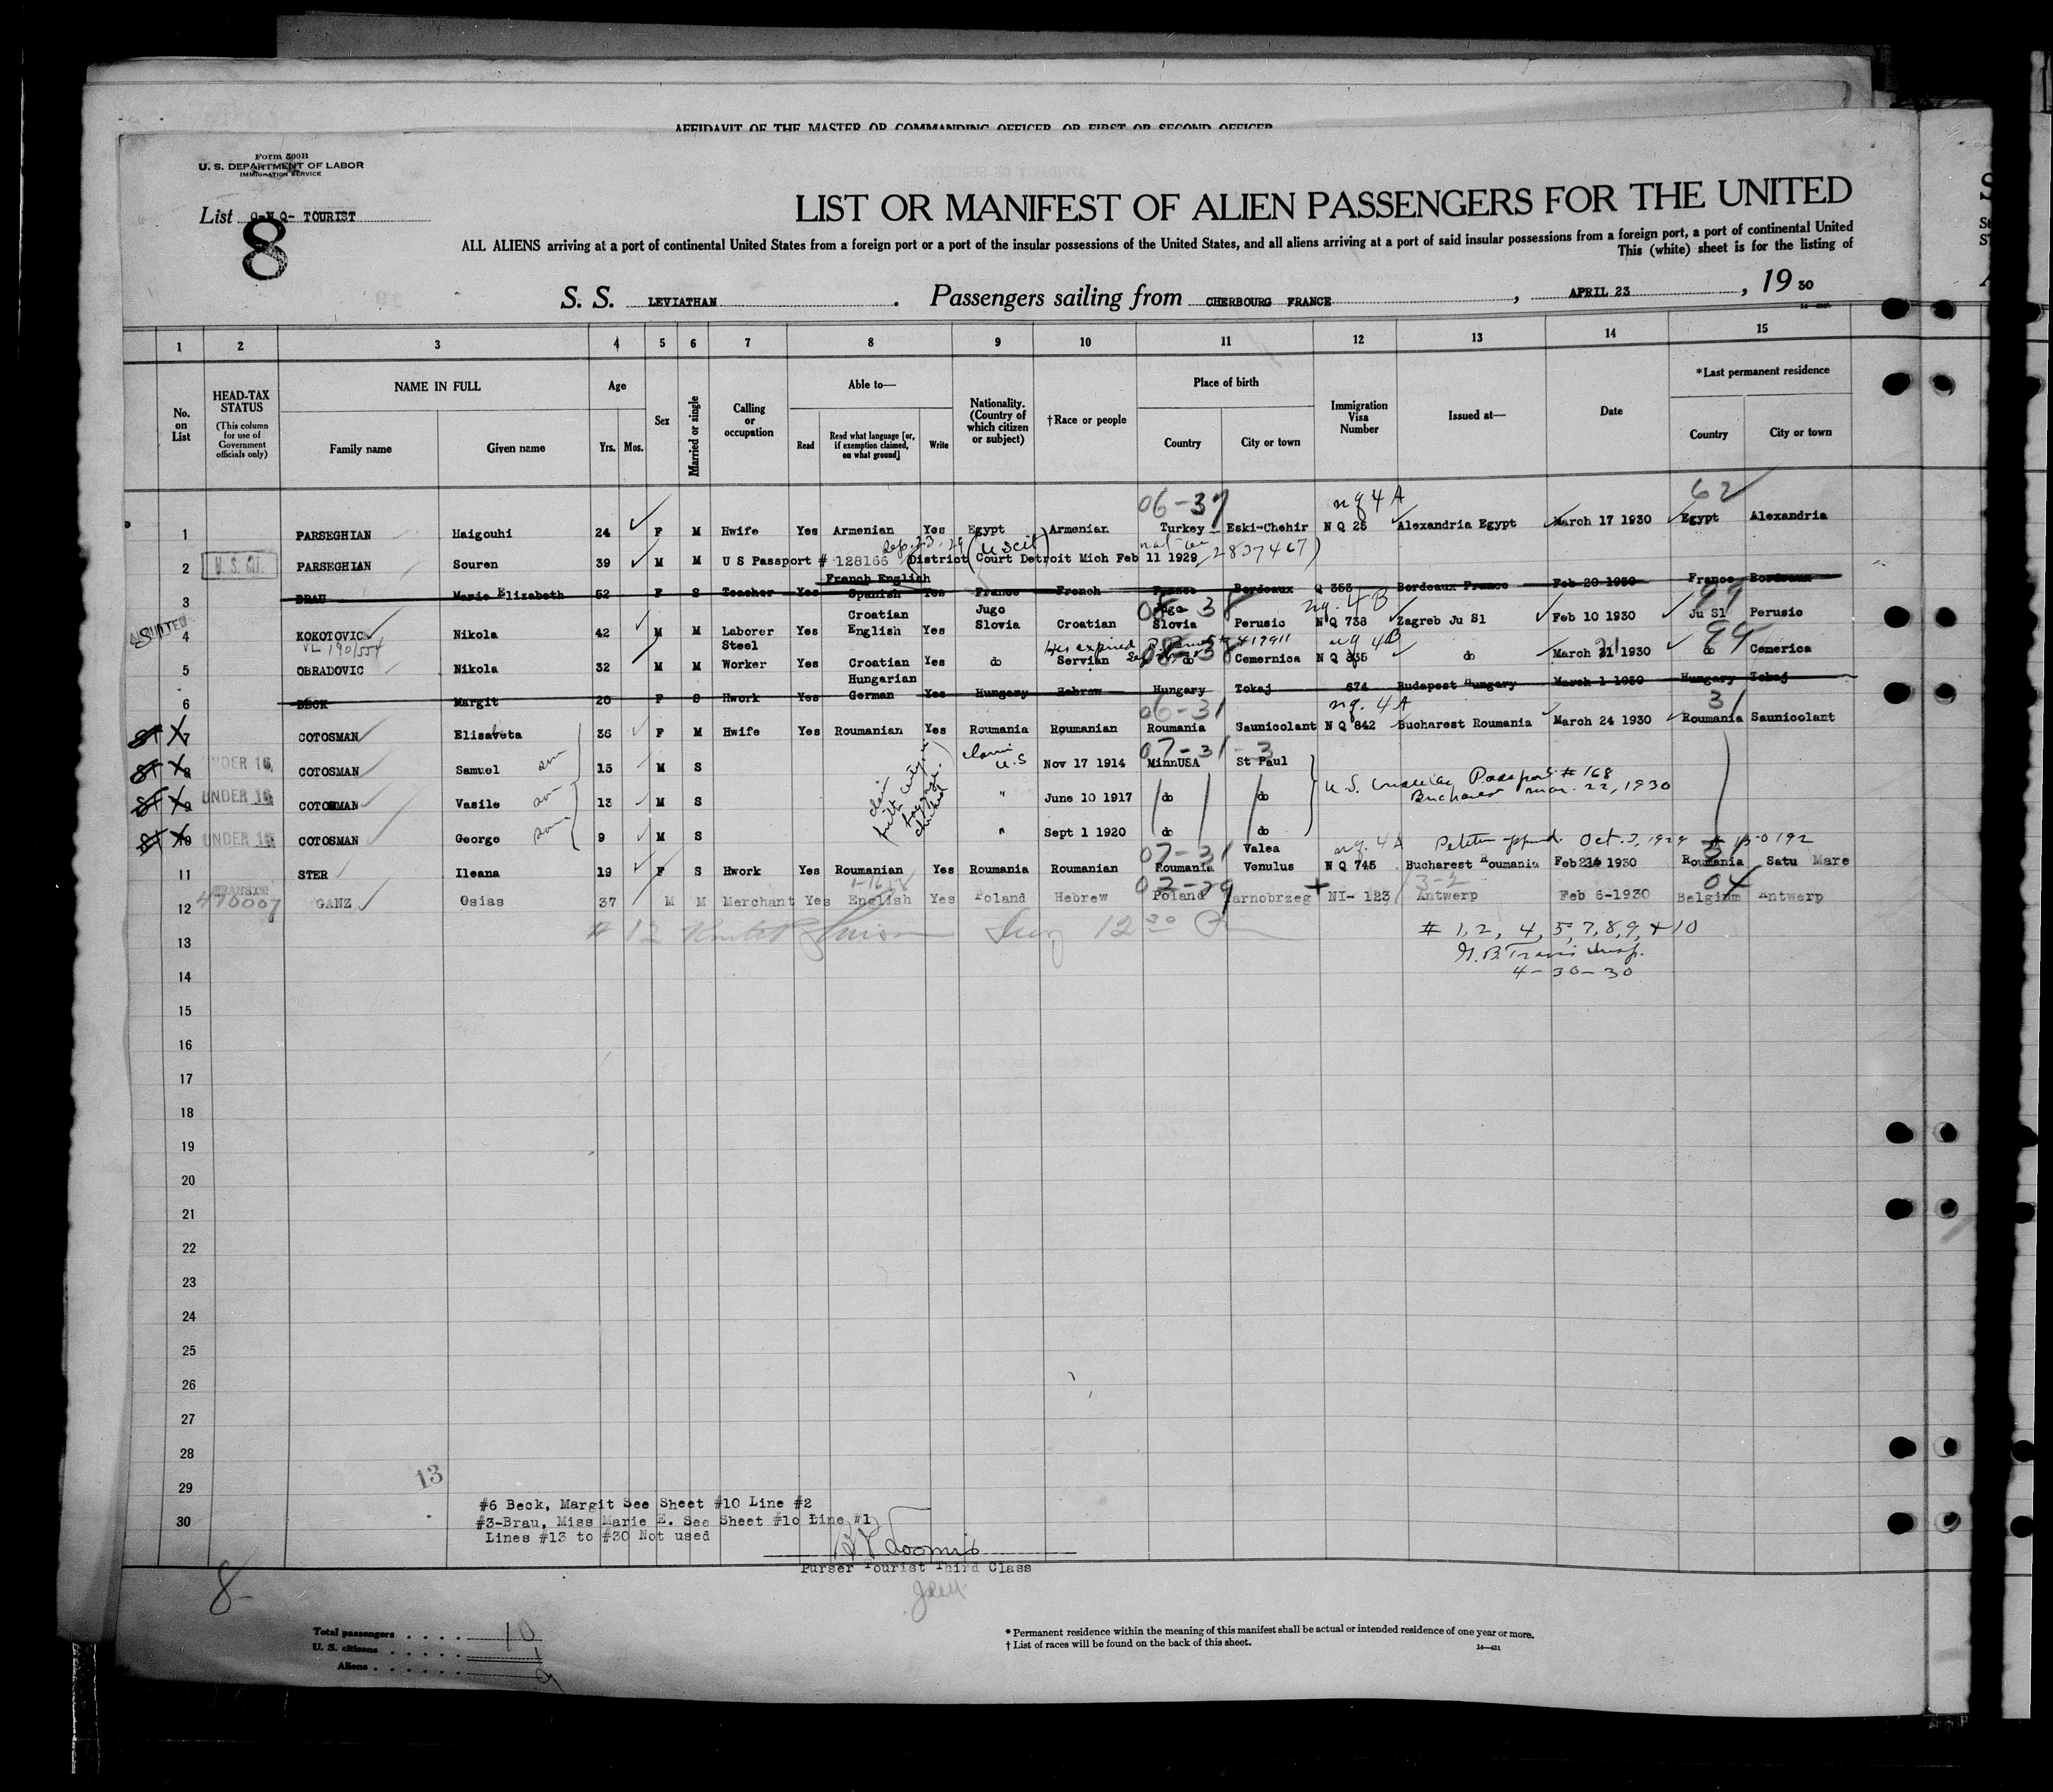 AFFIDAVIT OF THE MASTER OR COMMANDING OFFICER, OR FIRST OR SECOND OFFICER
Form 500B
U. S. DEPARTMENT OF LABOR
IMMIGRATION SERVICE
List Q-N Q- TOURIST
8
LIST OR MANIFEST OF ALIEN PASSENGERS FOR THE UNITED
ALL ALIENS arriving at a port of continental United States from a foreign port or a port of the insular possessions of the United States, and all aliens arriving at a port of said insular possessions from a foreign port, a port of continental United
This (white) sheet is for the listing of
S. S. LEVIATHAN . Passengers sailing from CHERBOURG FRANCE , APRIL 23 , 19 30
1 2 3 4 5 6 7 8 9 10 11 12 13 14 15
No. on List
HEAD-TAX STATUS (This column for use of Government officials only)
NAME IN FULL
Family name Given name
Age
Yrs. Mos.
Sex
Married or single
Calling or occupation
Able to—
Read
Read what language [or, if exemption claimed, on what ground]
Write
Nationality. (Country of which citizen or subject)
†Race or people
Place of birth
Country City or town
Immigration Visa Number
Issued at—
Date
*Last permanent residence
Country City or town
06-37 nq 4 A 62
1 PARSEGHIAN Haigouhi 24 F M Hwife Yes Armenian Yes Egypt Armenian Turkey Eski-Chehir N Q 25 Alexandria Egypt March 17 1930 Egypt Alexandria
Sep. 23, 29 (U S cit)
2 U. S. CIT. PARSEGHIAN Souren 39 M M U S Passport # 128166 District Court Detroit Mich Feb 11 1929 2837467)
French English
3 BRAU Marie Elizabeth 52 F S Teacher Yes Spanish Yes France French France Bordeaux Q 353 Bordeaux France Feb 20 1930 France Bordeaux
Croatian Jugo Jugo 38 nq. 4 B 99
4 KOKOTOVIC Nikola 42 M M Laborer Yes English Yes Slovia Croatian Slovia Perusic N Q 738 Zagreb Ju Sl Feb 10 1930 Ju Sl Perusic
VL 190/554
Steel nq 4B 99
5 OBRADOVIC Nikola 32 M M Worker Yes Croatian Yes do Servian do Cemernica N Q 835 do March 21 1930 do Cemerica
Hungarian
6 BECK Margit 20 F S Hwork Yes German Yes Hungary Hebrew Hungary Tokaj 674 Budapest Hungary March 1 1930 Hungary Tokaj
06-31 nq. 4 A 31
7 COTOSMAN Elisabeta 36 F M Hwife Yes Roumanian Yes Roumania Roumanian Roumania Saunicolant N Q 842 Bucharest Roumania March 24 1930 Roumania Saunicolant
07-31-3
8 UNDER 16 COTOSMAN Samuel son 15 M S claim U.S Nov 17 1914 MinnUSA St Paul
U.S. Passport # 168
9 UNDER 16 COTOSMAN Vasile son 13 M S " June 10 1917 do do Bucharest Mar. 22, 1930
10 UNDER 16 COTOSMAN George son 9 M S " Sept 1 1920 do do
07-31 Valea nq. 4 A Petition Oct. 3, 1929
11 STER Ileana 19 F S Hwork Yes Roumanian Yes Roumania Roumanian Roumania Venulus N Q 745 Bucharest Roumania Feb 1930 Roumania Satu Mare
TRANSIT
02-29 3-2 04
12 470007 GANZ Osias 37 M M Merchant Yes English Yes Poland Hebrew Poland Tarnobrzeg NI- 123 Antwerp Feb 6-1930 Belgium Antwerp
13 # 12 # 1, 2, 4, 5, 7, 8, 9, + 10
G.B. Travis Insp.
14 4-30-30
15
16
17
18
19
20
21
22
23
24
25
26
27
28
13
29
#6 Beck, Margit See Sheet #10 Line #2
30 #3-Brau, Miss Marie E. See Sheet #10 Line #1
Lines #13 to #30 Not used
Loomis
Purser Tourist Third Class
8
Total passengers . . . . 10
U. S. citizens . . . . . 1
Aliens . . . . . . 9
* Permanent residence within the meaning of this manifest shall be actual or intended residence of one year or more.
† List of races will be found on the back of this sheet.
14—431